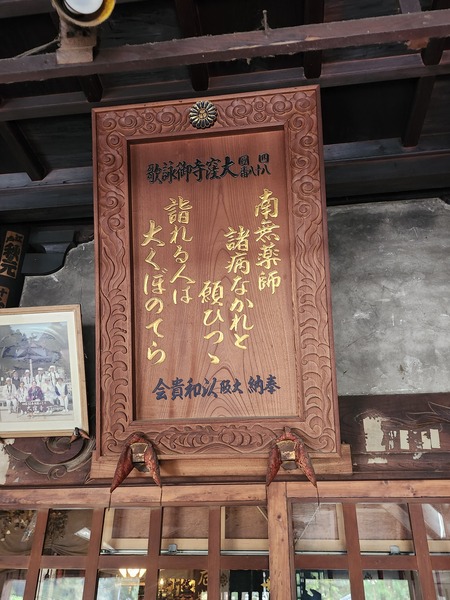 四國八十八番大窪寺御詠歌
南無薬師
諸病なかれと
願ひつゝ
詣れる人は
大くぼのてら
奉納 大阪 以和貴会